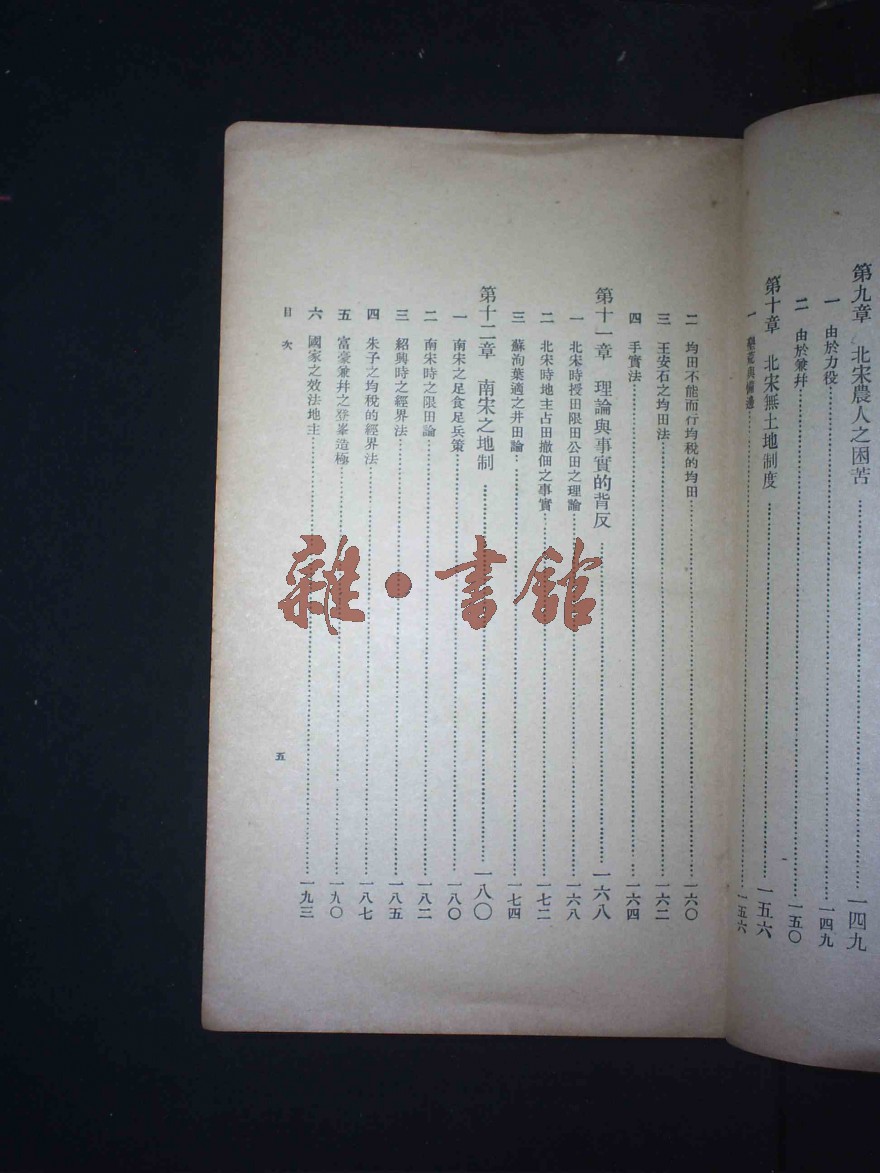 第九章 北宋農人之困苦……一四九
一 由於力役……一四九
二 由於兼幷……一五〇
第十章 北宋無土地制度……一五六
一 墾荒與……一五六
二 均田不能而行均稅的均田……一六〇
三 王安石之均田法……一六二
四 手實法……一六四
第十一章 理論與事實的背反……一六八
一 北宋時授田限田公田之理論……一六八
二 北宋時地主占田撤佃之事實……一七二
三 蘇洵葉適之井田論……一七四
第十二章 南宋之地制……一八〇
一 南宋之足食足兵策……一八〇
二 南宋時之限田論……一八二
三 紹興時之經界法……一八五
四 朱子之均稅的經界法……一八七
五 富豪兼幷之登峯造極……一九〇
六 國家之效法地主……一九三
目次
五
雜·書館